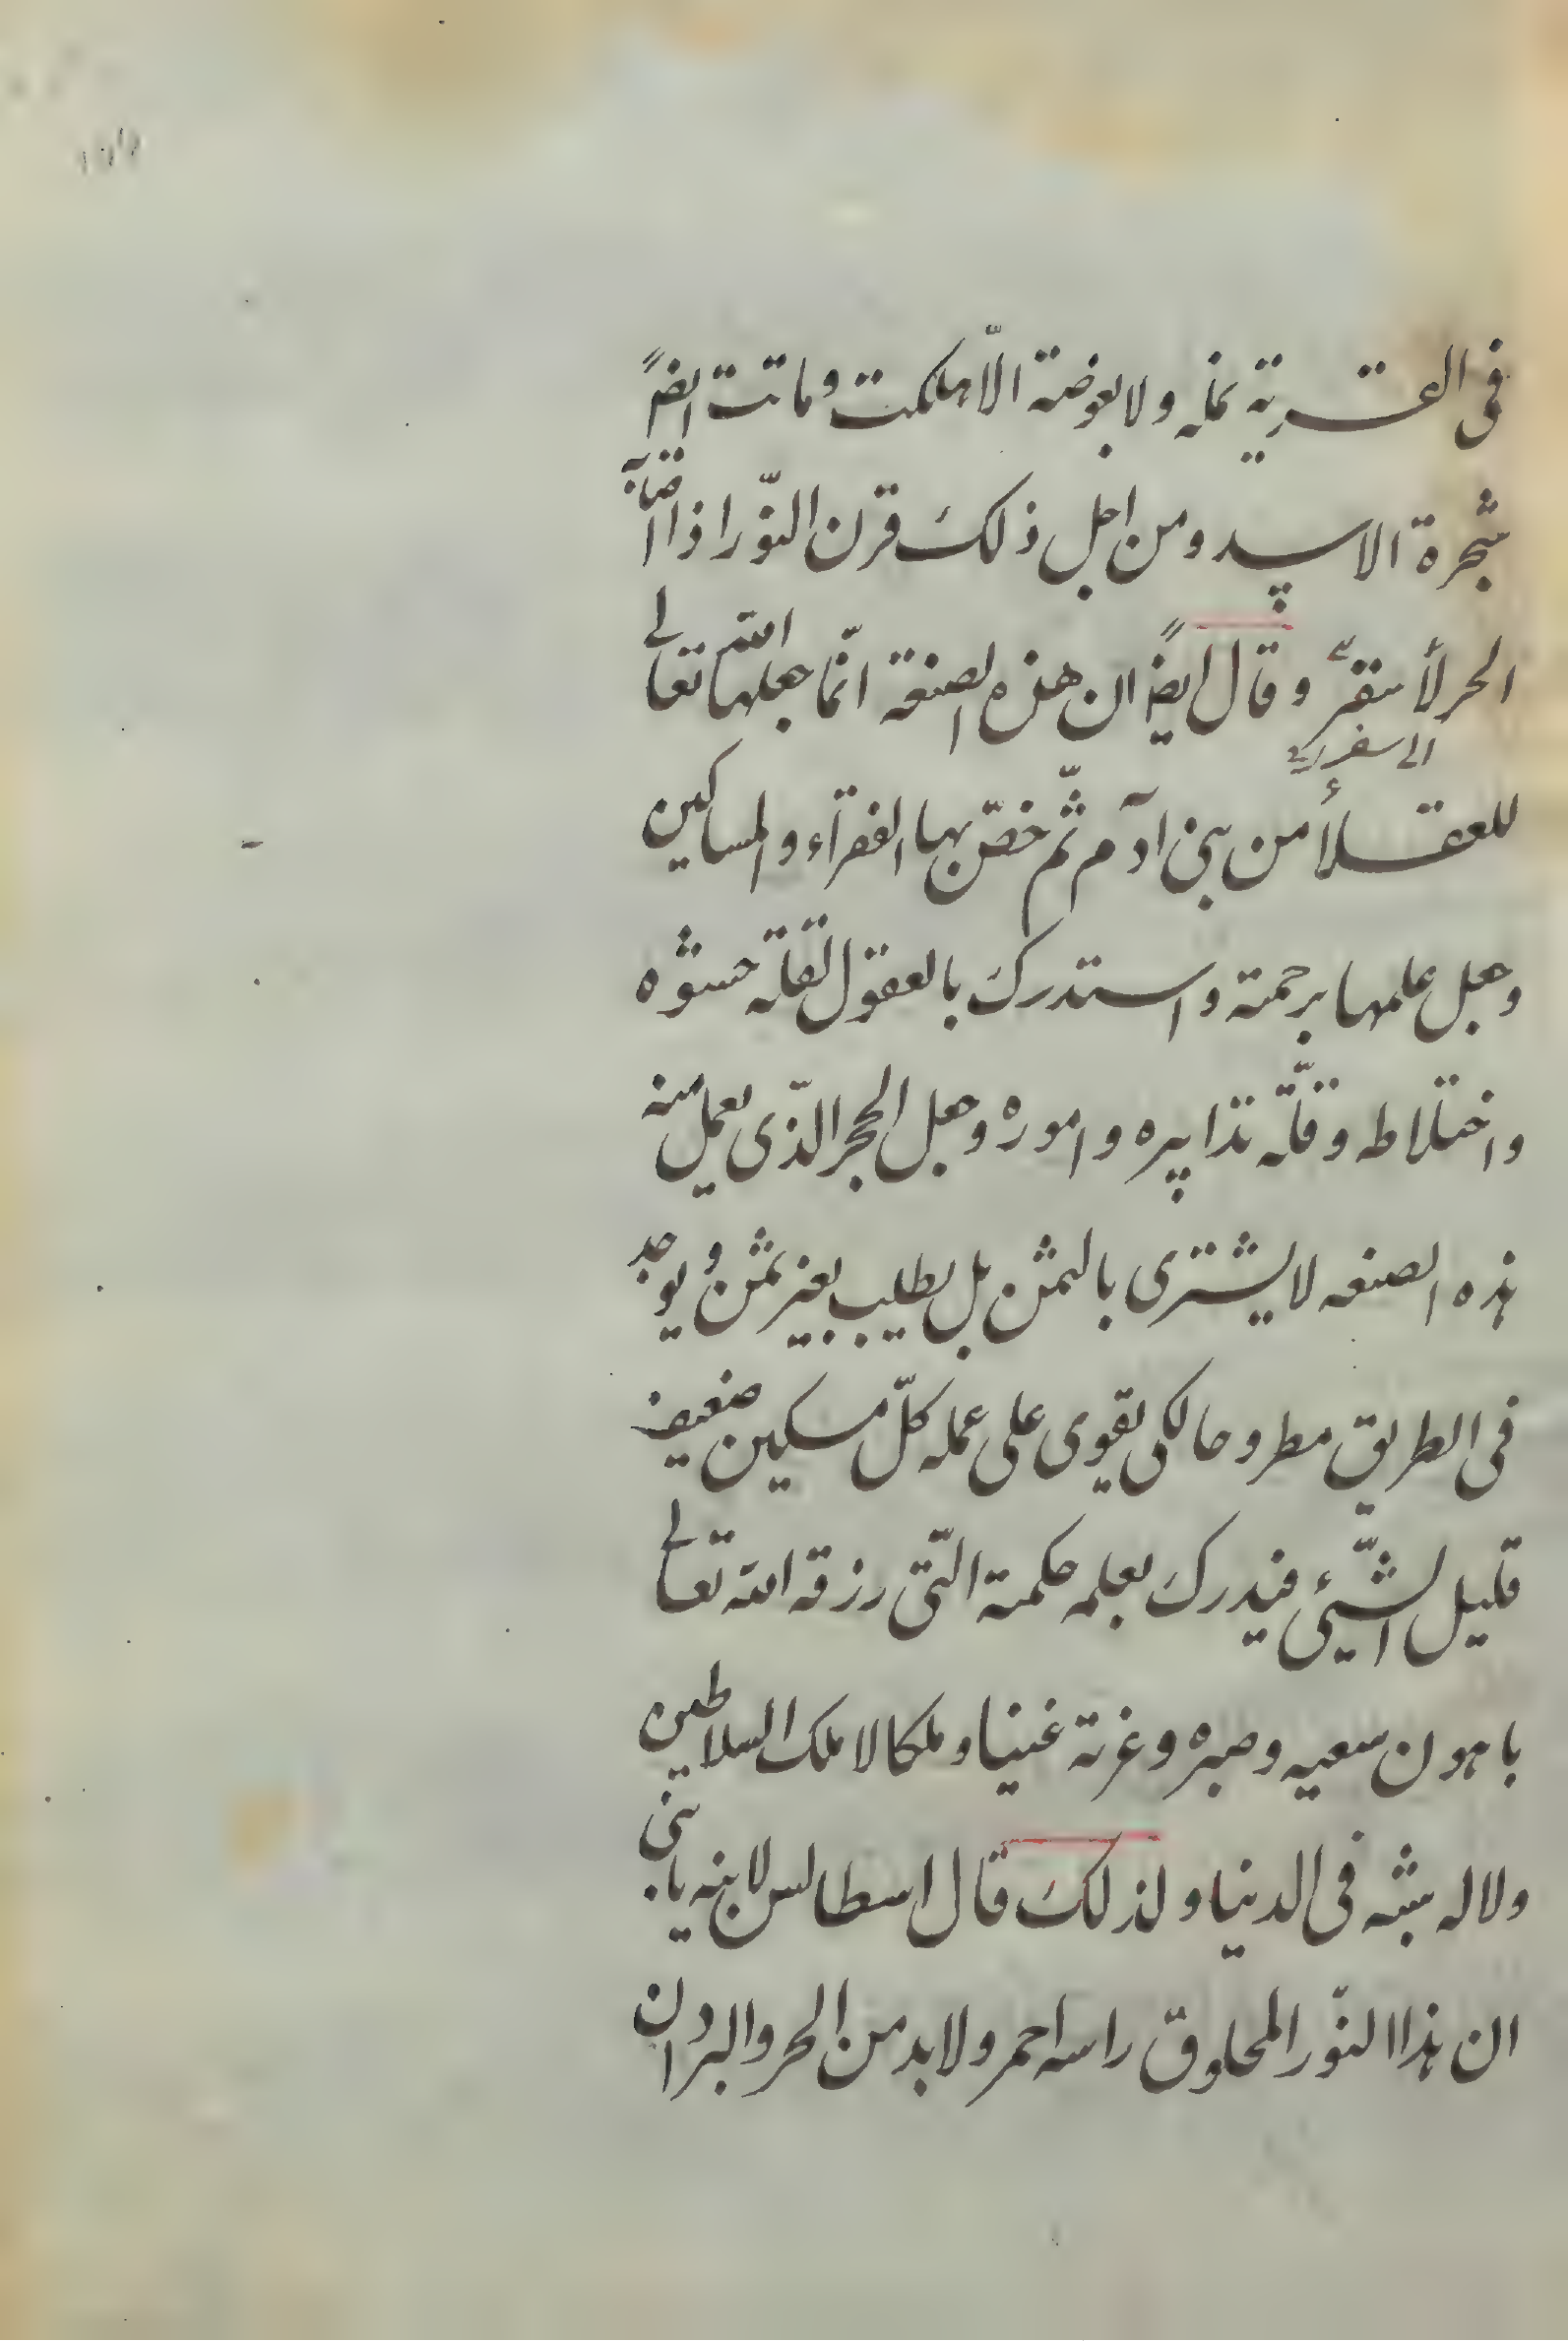 فى القرية نملة ولا بعوضة الّا هلكت وماتت ايضاً
شجرة الاسد ومن اجل ذلك قرن النّور اذا اصابه
الحر لأ ستقر وقال ايضاً ان هذه الصنعة انّما جعلها الله تعالى
للعقلأ من بنى ادم ثمّ خصّ بها الفقرآء والمساكين
وجعل علمها برحمته واستدرك بالعقول لقلة حشوه
واختلاطه وقلّة تدابيره واموره وجعل الحجر الّذى يعمل منه
هذه الصنعه لا يشترى بالثمن بل يطلب بغير ثمن ويوجد
فى الطريق مطروحا لكى يقوى على عمله كلّ مسكين ضعيف
قليل الشّيئ فيدرك بعلمه حكمة الّتى رزقه الله تعالى
باهون سعيه وصبره وغرته غنيا وملكا لا ملك السلاطين
ولا له شبه فى الدنيا ولذلك قال اسطالس لابنه يا بنى
ان هذا النّور المحلوق راسه احمر ولا بد من الحر والبرد ان